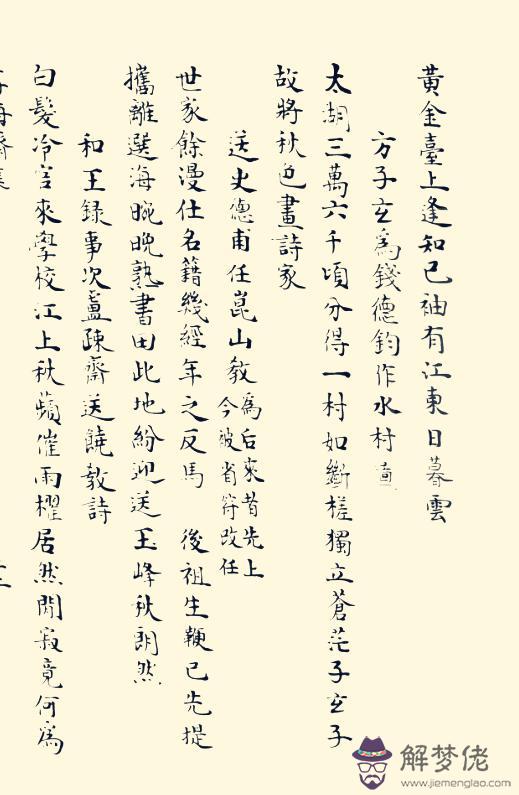 黃金臺上逢知己袖有江東日暮雲
方子玄為錢德鈞作水村
太湖三萬六千頃分得一村如斷槎獨立蒼茫子玄子
故將秋色畫詩家
送史德甫任崑山教為后來昔先上
今被省符改任
世家餘漫仕名籍幾經年之反馬 後祖生鞭已先提
攜離選海晼晚熟書田此地紛迎送玉峰秋朗然
和王録事次盧疎齋送饒教詩
白髮冷官來學校江上秋蘋催雨櫂居然閒寂竟何為
解梦佬
www.jiemenglao.com